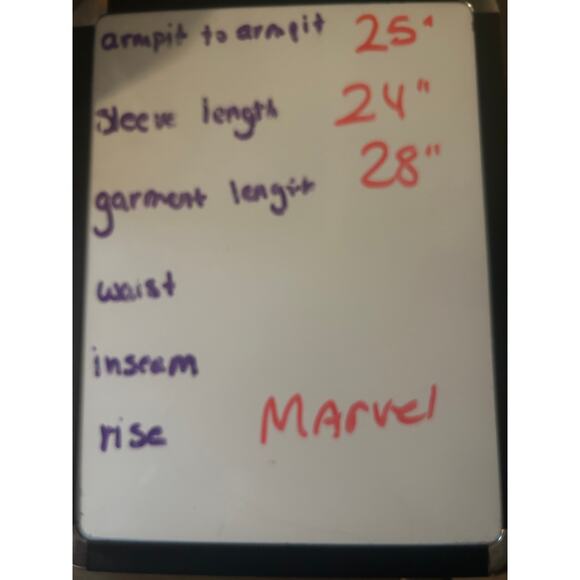 armpit to armpit 25"
sleeve length 24"
garment lengtt 28"
waist
inseam
rise MArvel